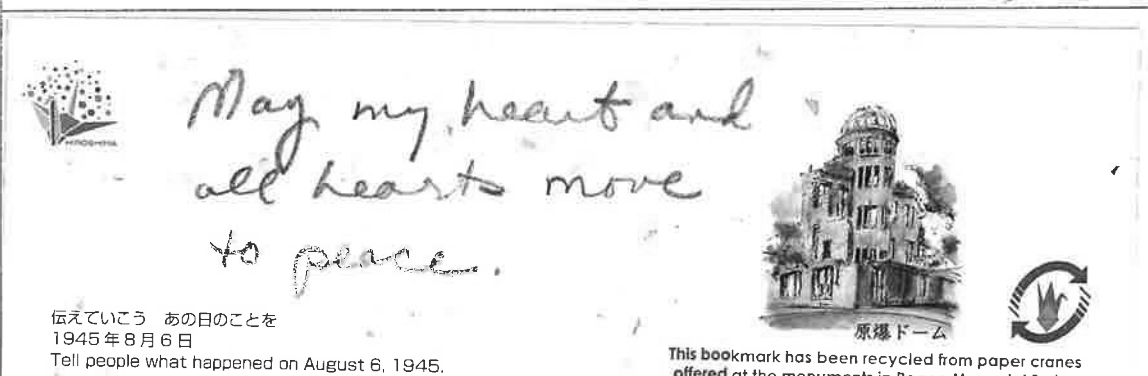 HIROSHIMA
May my heart and
all hearts move
to peace.
伝えていこう あの日のことを
1945年8月6日
Tell people what happened on August 6, 1945.
原爆ドーム
This bookmark has been recycled from paper cranes
offered at the monuments in